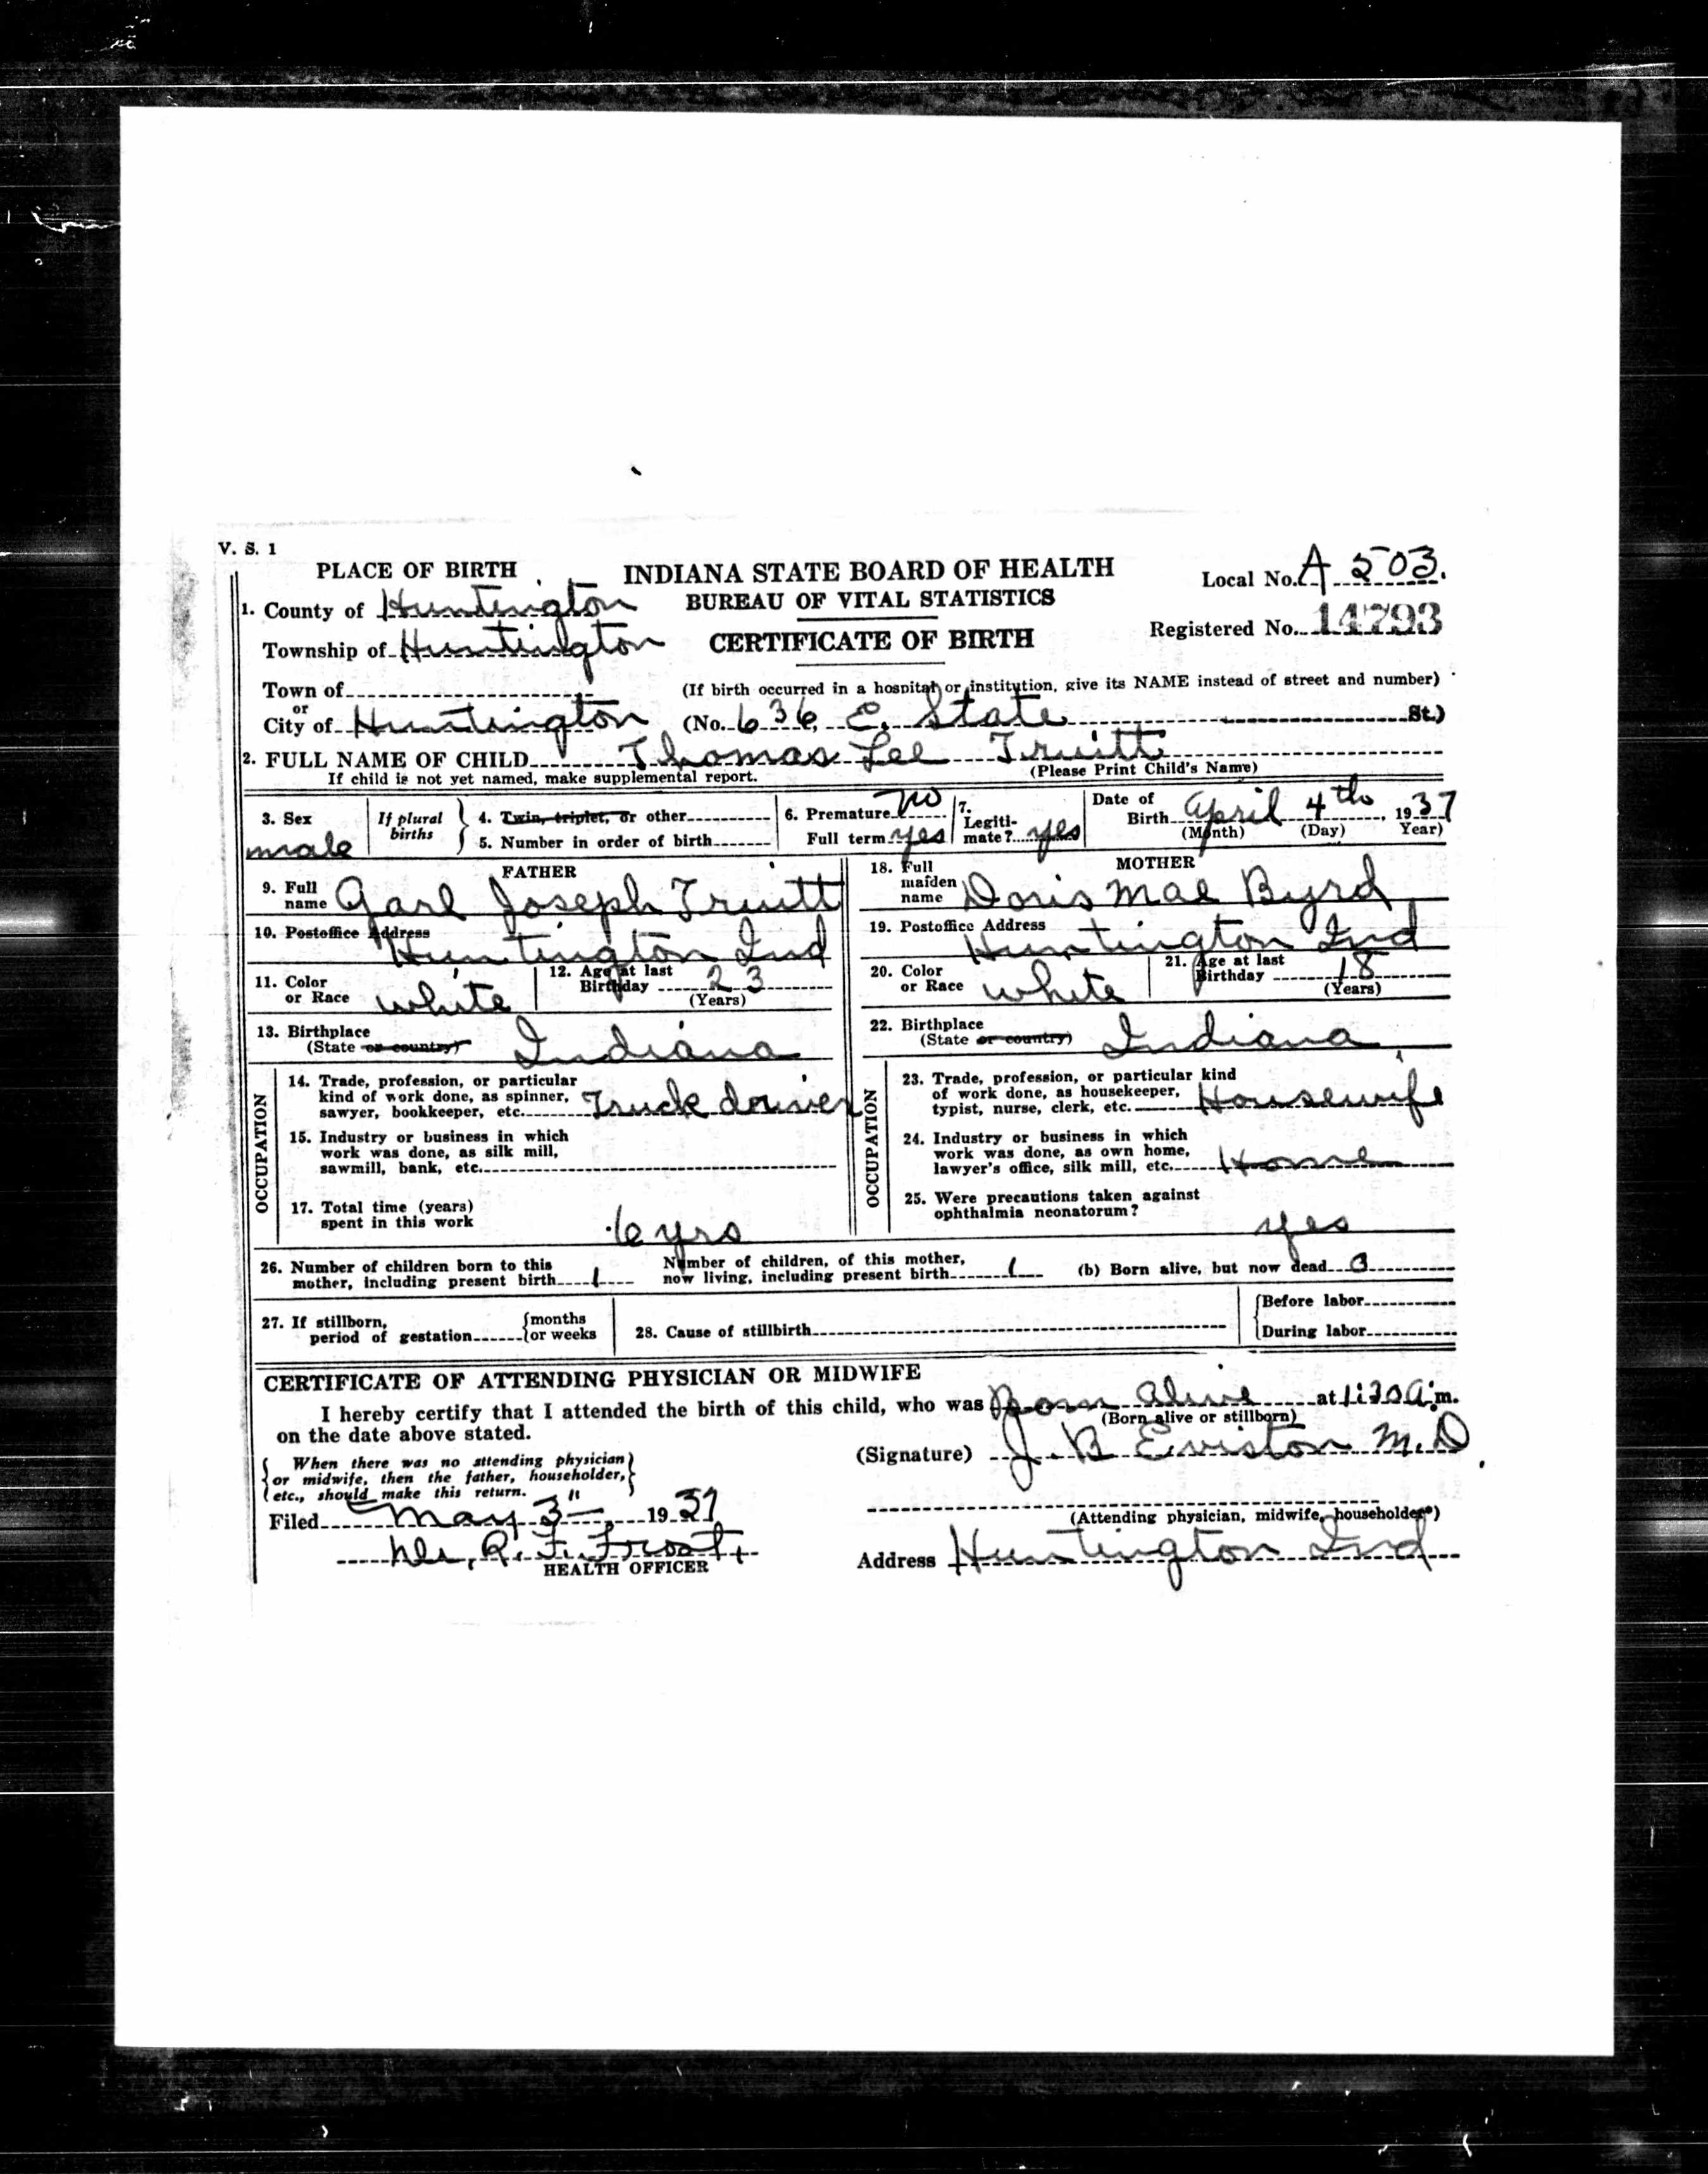 V. S. 1
PLACE OF BIRTH
INDIANA STATE BOARD OF HEALTH
BUREAU OF VITAL STATISTICS
CERTIFICATE OF BIRTH
Local No. A 503.
Registered No. 14793
1. County of Huntington
Township of Huntington
Town of
or
City of Huntington
(If birth occurred in a hospital or institution, give its NAME instead of street and number)
(No. 636 E. State St.)
2. FULL NAME OF CHILD Thomas Lee Truitt
If child is not yet named, make supplemental report.
(Please Print Child's Name)
3. Sex
male
If plural births
4. Twin, triplet, or other
5. Number in order of birth
6. Premature no
Full term yes
7. Legiti-
mate? yes
Date of
Birth April 4th, 1937
(Month) (Day) Year)
FATHER
9. Full
name Garl Joseph Truitt
10. Postoffice Address
Huntington Ind
11. Color
or Race white
12. Age at last
Birthday 23
(Years)
13. Birthplace
(State or country) Indiana
OCCUPATION
14. Trade, profession, or particular
kind of work done, as spinner,
sawyer, bookkeeper, etc. Truck driver
15. Industry or business in which
work was done, as silk mill,
sawmill, bank, etc.
17. Total time (years)
spent in this work 6 yrs
MOTHER
18. Full
maiden
name Doris Mae Byrd
19. Postoffice Address
Huntington Ind
20. Color
or Race white
21. Age at last
Birthday 18
(Years)
22. Birthplace
(State or country) Indiana
OCCUPATION
23. Trade, profession, or particular kind
of work done, as housekeeper,
typist, nurse, clerk, etc. Housewife
24. Industry or business in which
work was done, as own home,
lawyer's office, silk mill, etc. Home
25. Were precautions taken against
ophthalmia neonatorum? yes
26. Number of children born to this
mother, including present birth 1
Number of children, of this mother,
now living, including present birth 1
(b) Born alive, but now dead 0
27. If stillborn,
period of gestation
months
or weeks
28. Cause of stillbirth
Before labor
During labor
CERTIFICATE OF ATTENDING PHYSICIAN OR MIDWIFE
I hereby certify that I attended the birth of this child, who was Born Alive at 1:20 A.m.
(Born alive or stillborn)
on the date above stated.
When there was no attending physician
or midwife, then the father, householder,
etc., should make this return.
(Signature) J. B Eviston M.D
(Attending physician, midwife, householder*)
Filed May 3" 1937
Dr. R. F. Frost
HEALTH OFFICER
Address Huntington Ind